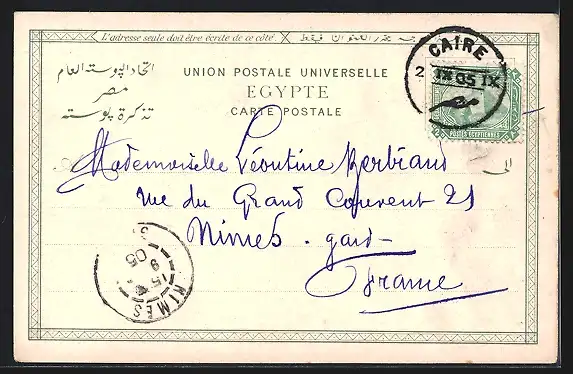 L'adresse seule doit être écrite de ce côté.
اتحاد البوستة العام
مصر
تذكرة بوستة
UNION POSTALE UNIVERSELLE
EGYPTE
CARTE POSTALE
CAIRE
2
IX 05 IX
POSTES EGYPTIENNES
Mademoiselle Léontine
rue du Grand Couvent 21
Nimes - gard -
France
الى
NIMES
15
9
05